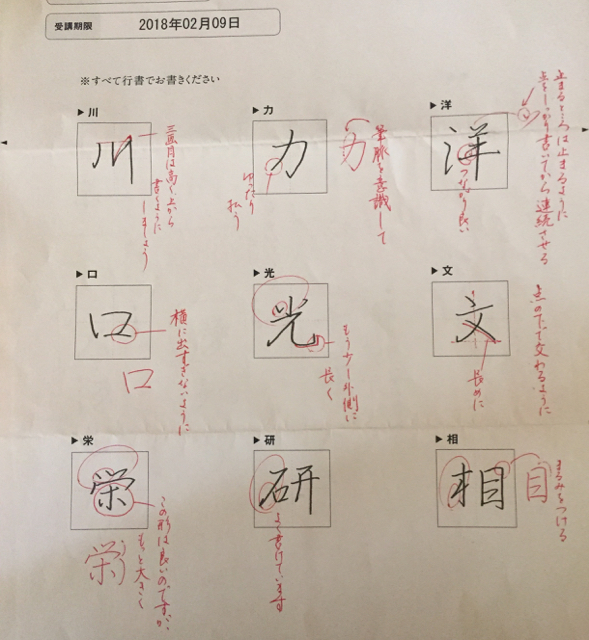 受講期限 2018年02月09日
※すべて行書でお書きください
▶川
川
三画目は高く上から
書くように
しましょう
▶力
力
力
筆脈を意識して
ゆったり
払う
▶洋
洋
止まるところは止まるように
点をしっかり書いてから連続させる
つながり良い
▶口
口
横に出すぎないように
口
▶光
光
もう少し外側に
長く
▶文
文
点の下で交わるように
長めに
▶栄
栄
この形は良いのですが、
もっと大きく
栄
▶研
研
よく書けています
▶相
相
目
まるみをつける